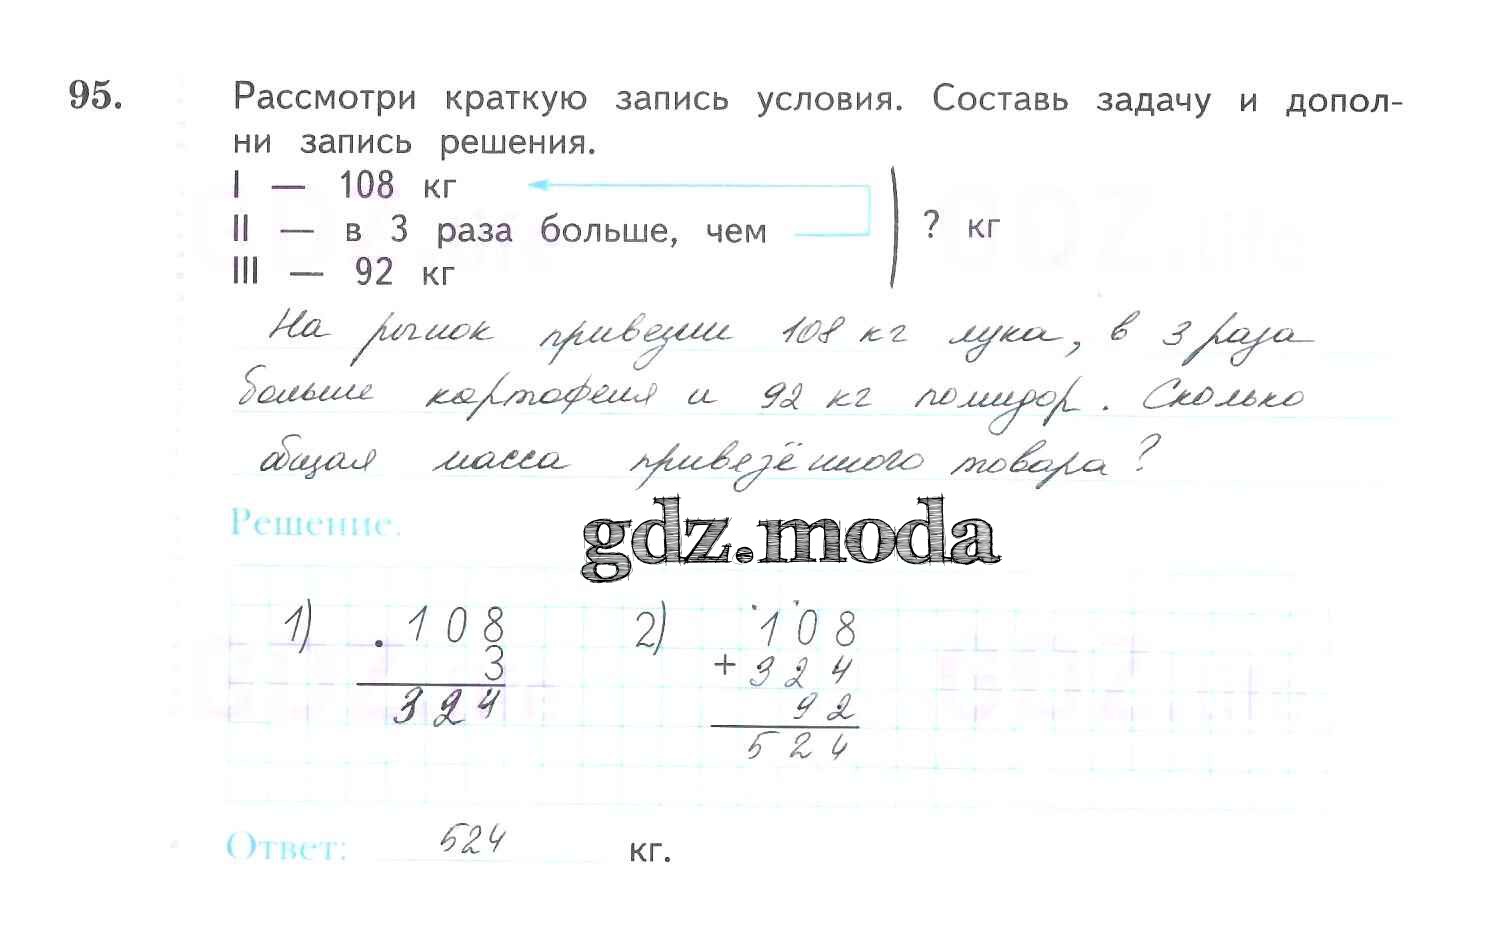 95. Рассмотри краткую запись условия. Составь задачу и допол-
ни запись решения.
I — 108 кг
II — в 3 раза больше, чем
? кг
III — 92 кг
На рынок привезли 108 кг лука, в 3 раза
больше картофеля и 92 кг помидор. Сколько
общая масса привезённого товара?
Решение.
gdz.moda
1) . 108
3
324
2) 108
+ 324
92
524
Ответ: 524 кг.